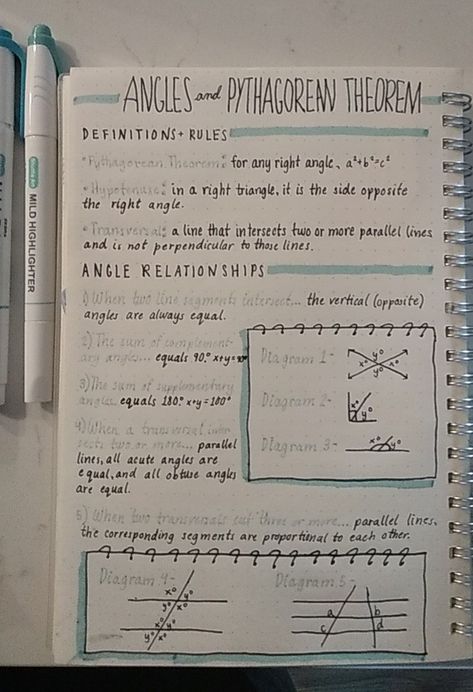 ANGLES and PYTHAGOREAN THEOREM
DEFINITIONS + RULES
• Pythagorean Theorem: for any right angle, a²+b²=c²
• Hypotenuse: in a right triangle, it is the side opposite
the right angle.
• Transversal: a line that intersects two or more parallel lines
and is not perpendicular to those lines.
ANGLE RELATIONSHIPS
1) When two line segments intersect... the vertical (opposite)
angles are always equal.
2) The sum of complement-
ary angles... equals 90° x+y=90°
3) The sum of supplementary
angles. equals 180° x+y=100°
4) When a transversal inter
sects two or more... parallel
lines, all acute angles are
equal, and all obtuse angles
are equal.
Diagram 1-
x° y° x° y°
Diagram 2-
x° y°
Diagram 3-
x° y°
5) When two transversals cut three or more... parallel lines,
the corresponding segments are proportional to each other.
Diagram 4-
x° y°
y° x°
x° y°
y° x°
Diagram 5-
a b
c d
MILD HIGHLIGHTER